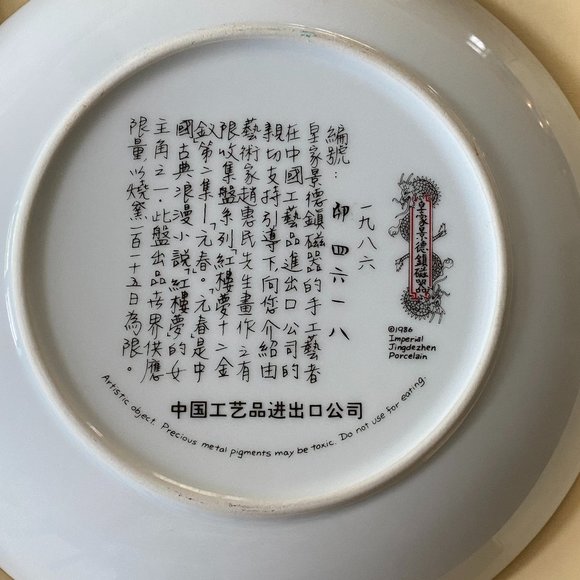 皇家景德鎮磁器
©1986
Imperial
Jingdezhen
Porcelain
一九八六
編號: 卯四六一八
皇家景德鎮磁器的手工藝者
在中國工藝品進出口公司的
親切支持引導下,向您介紹由
藝術家趙惠民先生畫作之有
限收集盤系列「紅樓夢十二金
釵」第二集—「元春」。元春是中
國古典浪漫小說「紅樓夢」的女
主角之一,此盤出品世界供應
限量,以燒窯一百一十五日為限。
中国工艺品进出口公司
Artistic object. Precious metal pigments may be toxic. Do not use for eating.